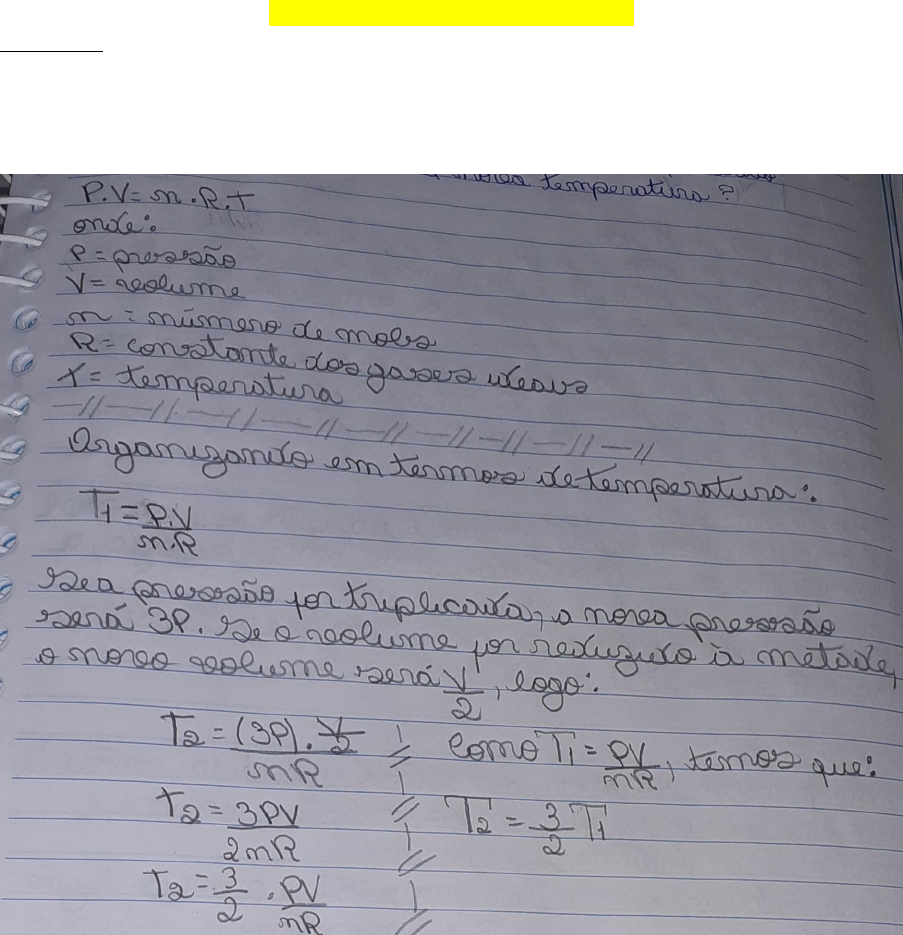 temperatura?
P.V=n.R.T
onde:
P = pressão
V = volume
n = número de mols
R = constante dos gases ideais
T = temperatura
Organizando em termos de temperatura:
T1 = P.V / n.R
Se a pressão for triplicada, a nova pressão
será 3P. Se o volume for reduzido à metade,
o novo volume será V/2, logo:
T2 = (3P). V/2 / nR
Como T1 = PV / nR, temos que:
T2 = 3PV / 2nR
T2 = 3/2 T1
T2 = 3/2 . PV / nR